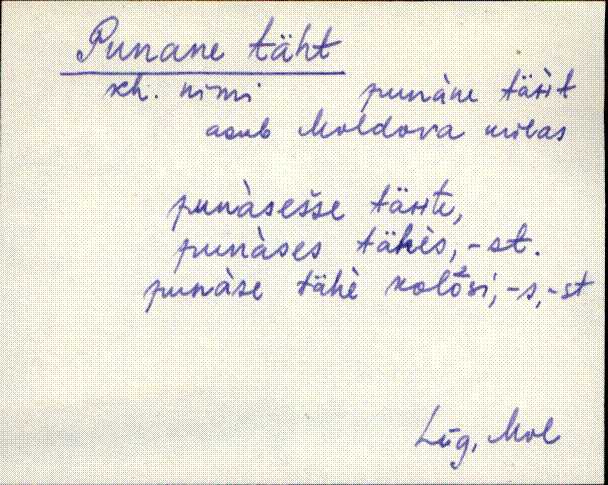 Punane täht
kh. nimi punàne täʜt
asub Moldova külas
punàsešse täʜte,
punàses tähès, -st.
punàse tähè kolòsi, -s, -st
Lüg, Mol